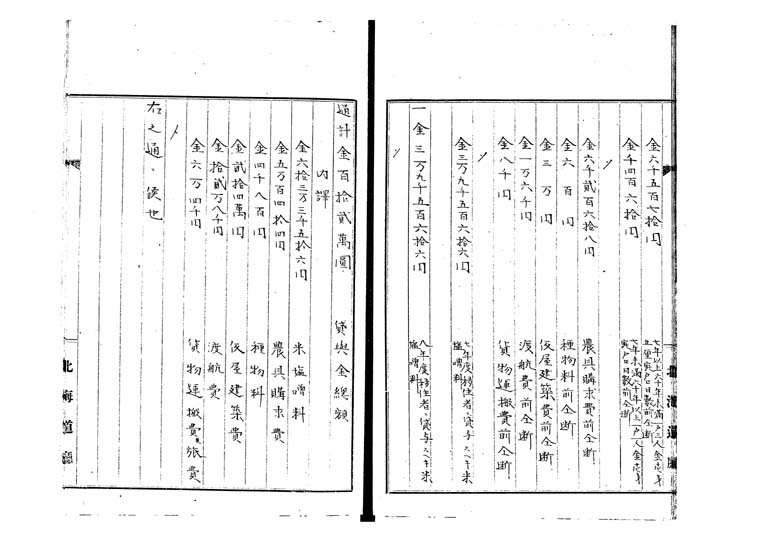 金六千五百七拾円
金千四百六拾円
金六千貳百六拾八円 農具購求費前仝断
金六百円 種物料前仝断
金三万円 仮屋建築費前仝断
金一万六千円 渡航費前仝断
金八千円 貨物運搬費前仝断
金三万九千五百六拾六円 塩噌料
一金三万九千五百六拾六円 塩噌料
北海道廳
通計金百拾貳萬圓 貸與金総額
内譯
金六拾三万三千五拾六円 米塩噌料
金五万百四拾四円 農具購求費
金四千八百円 種物料
金貳拾四萬円 仮屋建築費
金拾貳万八千円 渡航費
金六万四千円 貨物運搬費旅費
右之通ニ候也
北海道廳